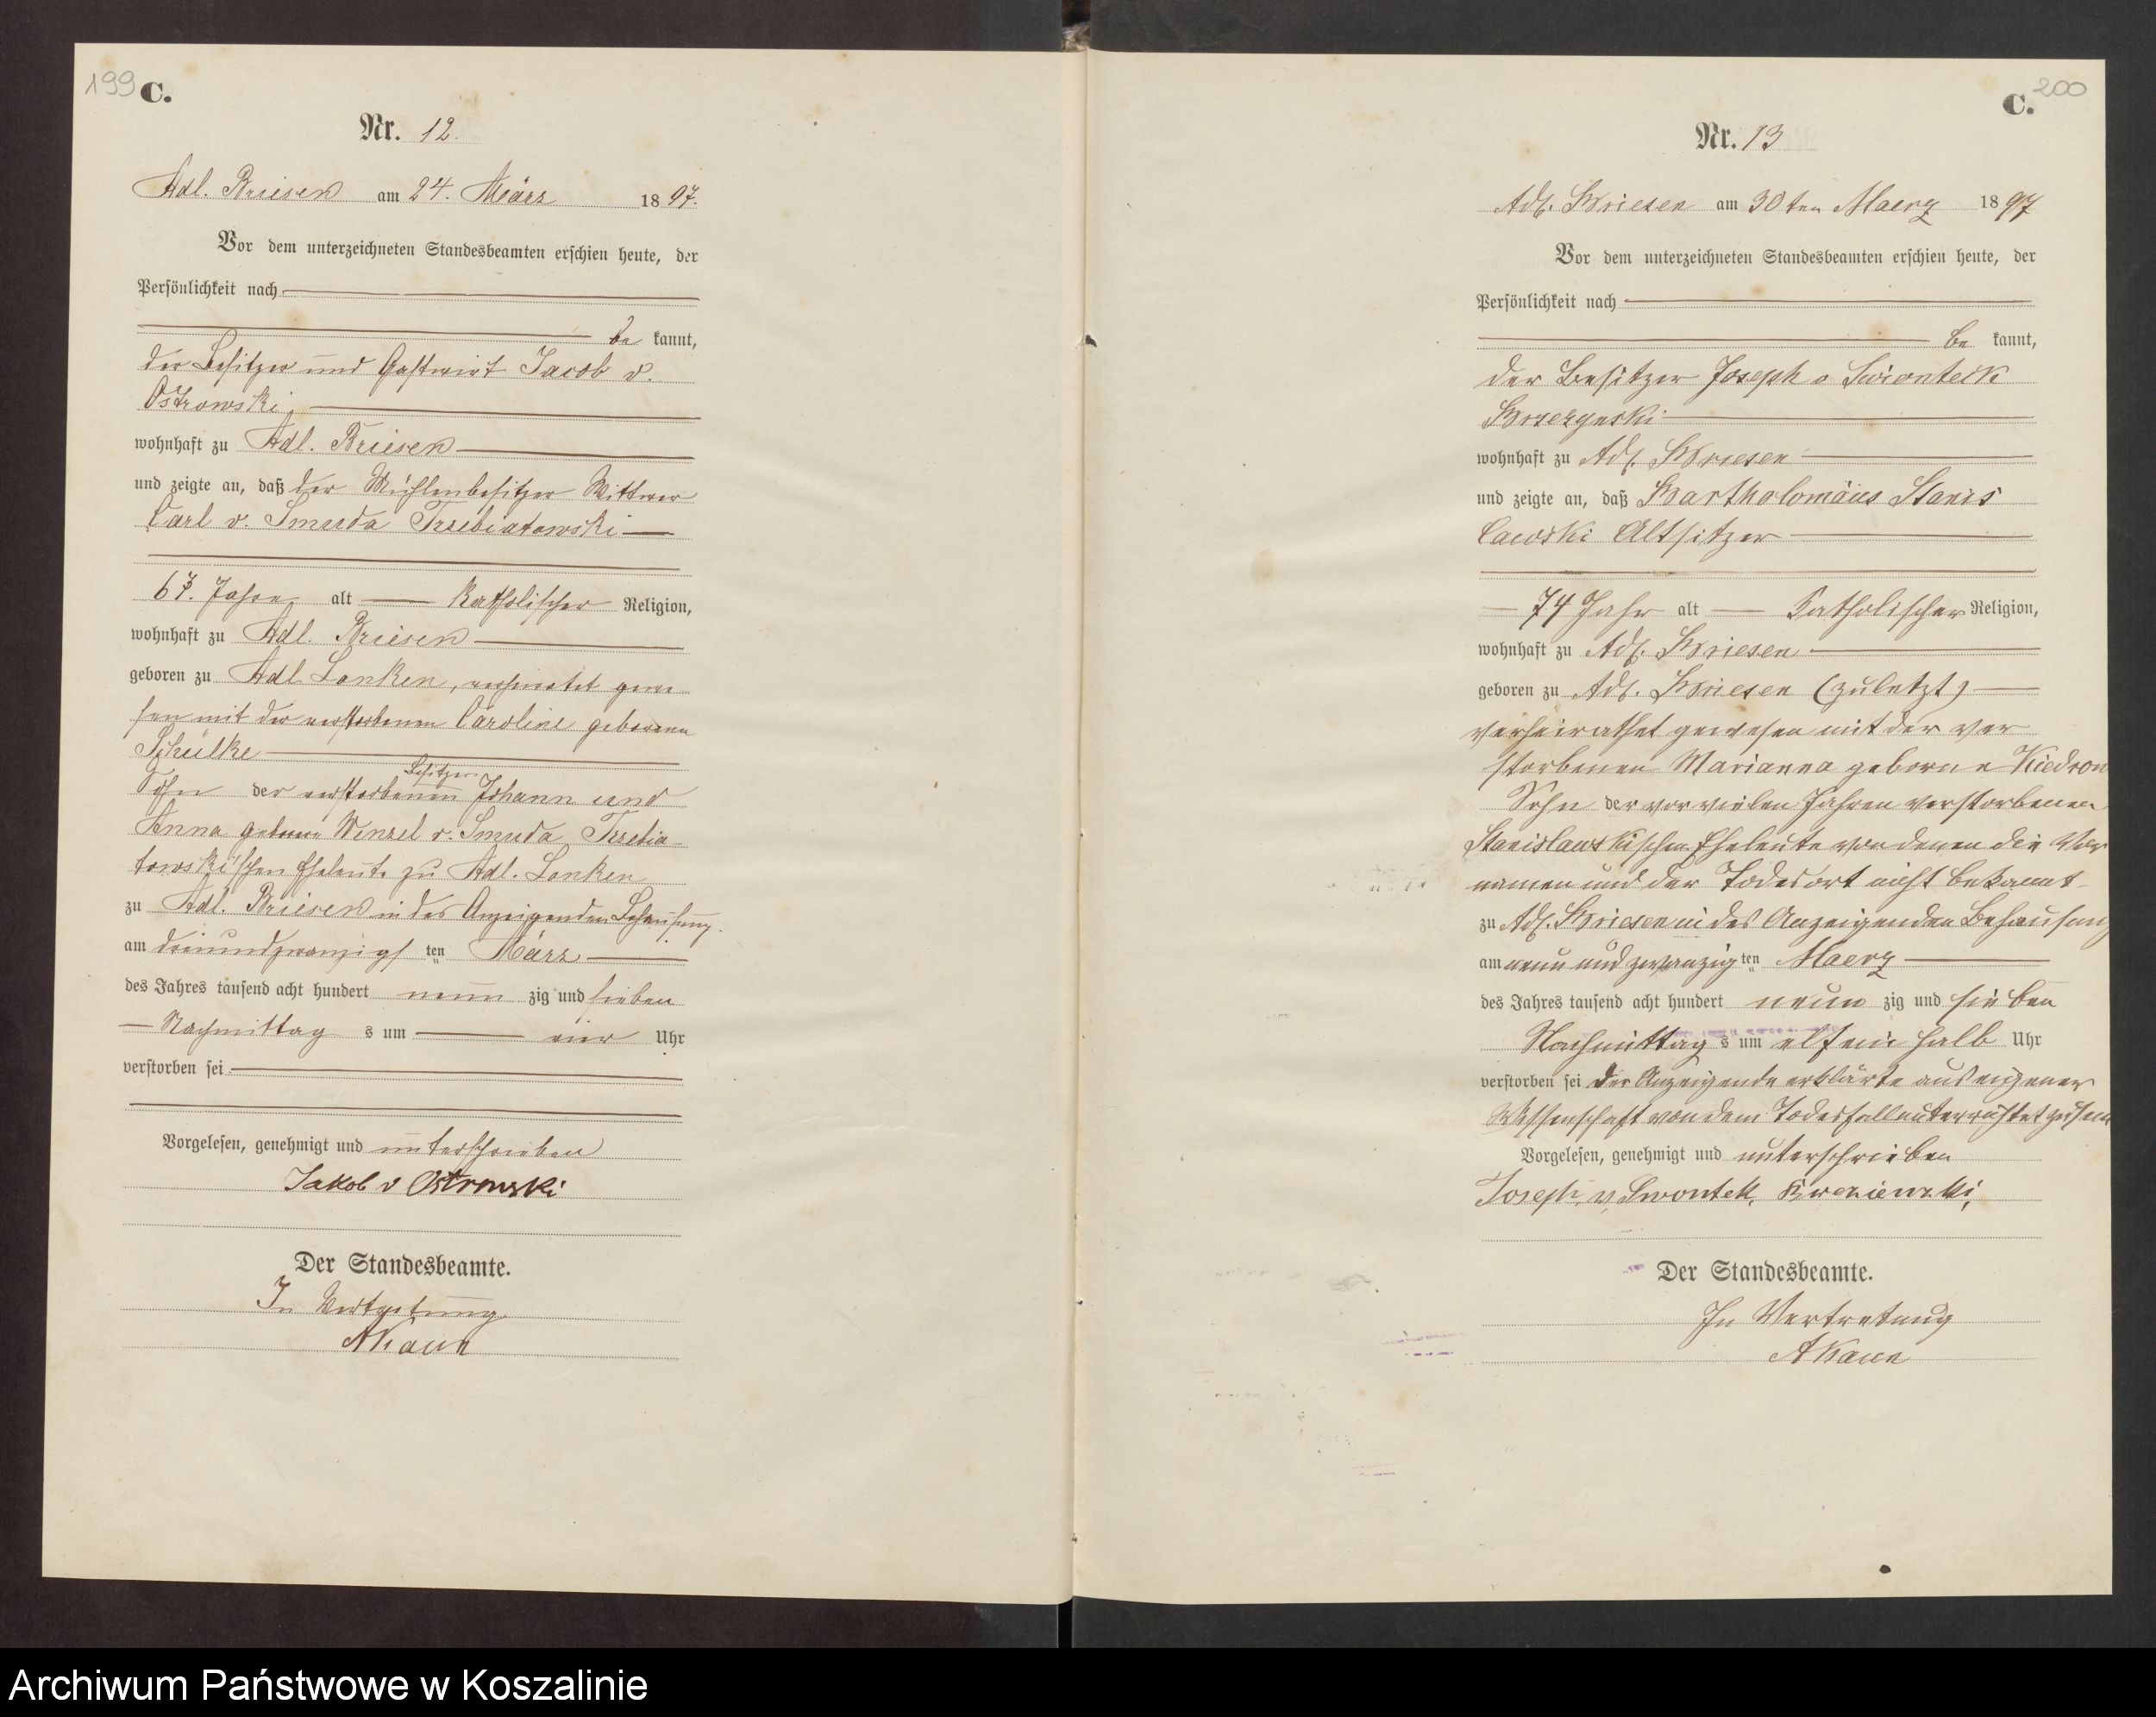 199 C.
Nr. 12.
Adl. Briesen am 24. März 1897.
Vor dem unterzeichneten Standesbeamten erschien heute, der
Persönlichkeit nach
be kannt,
der Besitzer und Gastwirt Jacob v.
Ostrowski,
wohnhaft zu Adl. Briesen
und zeigte an, daß der Mühlenbesitzer Wittwer
Carl v. Smuda Trzebiatowski
67. Jahre alt katholischer Religion,
wohnhaft zu Adl. Briesen
geboren zu Adl. Lanken, verheiratet gewe-
sen mit der verstorbenen Caroline geborenen
Schülke
Besitzer
Sohn der verstorbenen Johann und
Anna geborene Wenzel v. Smuda Trzebia-
towski'schen Eheleute zu Adl. Lanken
zu Adl. Briesen in des Anzeigenden Behausung
am dreiundzwanzigs ten März
des Jahres tausend acht hundert neun zig und sieben
Nachmittag s um vier Uhr
verstorben sei
Vorgelesen, genehmigt und unterschrieben
Jakob v Ostrowski
Der Standesbeamte.
In Vertretung
C. 200
Nr. 13
Adl. Briesen am 30ten Maerz 1897
Vor dem unterzeichneten Standesbeamten erschien heute, der
Persönlichkeit nach
be kannt,
der Besitzer Joseph v Swionteck
wohnhaft zu Adl. Briesen
und zeigte an, daß Bartholomäus Stanis
lawski Altsitzer
74 Jahr alt katholischer Religion,
wohnhaft zu Adl. Briesen
geboren zu Adl. Briesen (zuletzt)
verheirathet gewesen mit der ver
storbenen Marianna geborne Kiedron
Sohn der vor vielen Jahren verstorbenen
Stanislawskischen Eheleute von denen die Vor
namen und der Todesort nicht bekannt
zu Adl. Briesen in des Anzeigenden Behausung
am neun und zwanzig ten Maerz
des Jahres tausend acht hundert neun zig und sieben
Nachmittag s um elf ein halb Uhr
verstorben sei Der Anzeigende erklärte aus eigener
Wissenschaft von dem Todesfall unterrichtet zu sein
Vorgelesen, genehmigt und unterschrieben
Joseph v Swontek
Der Standesbeamte.
In Vertretung
Archiwum Państwowe w Koszalinie